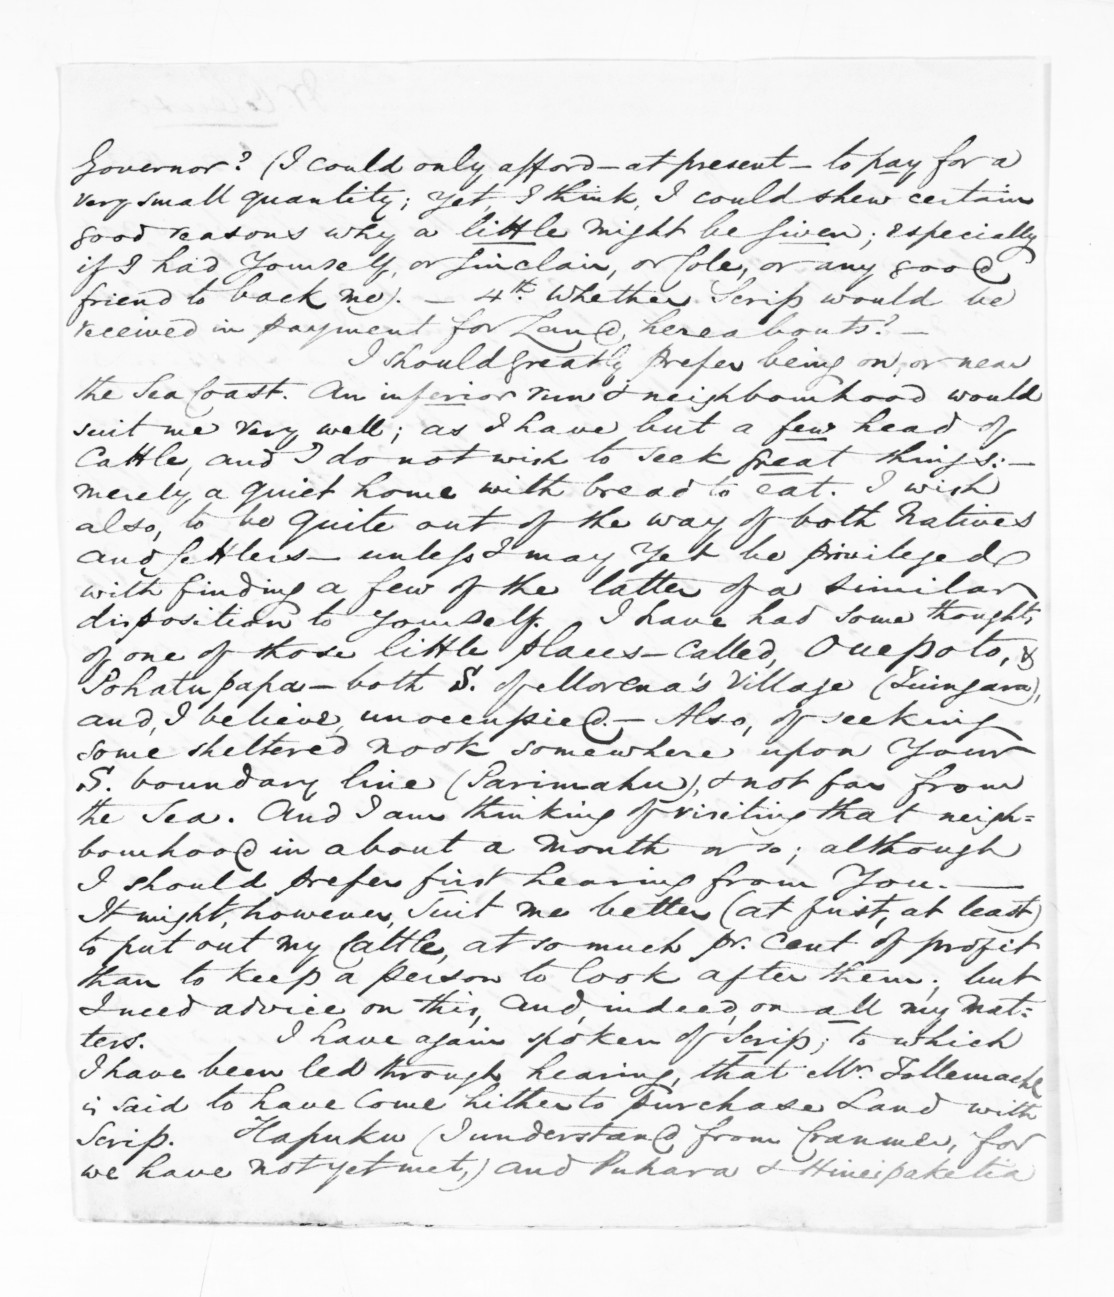 Governor? (I could only afford—at present—to pay for a
very small quantity; yet I think, I could shew certain
good reasons why a little might be given; especially
if I had Yourself, or Sinclair, or Cole, or any good
friend to back me). — 4th. Whether Scrip would be
received in payment for Land, hereabouts? —
I should greatly prefer being on, or near
the Sea Coast. An inferior run & neighbourhood would
suit me very well; as I have but a few head of
Cattle, and I do not wish to seek great things:—
merely a quiet home with bread to eat. I wish
also, to be quite out of the way of both Natives
and Settlers—unless I may yet be privileged
with finding a few of the latter of a similar
disposition to Yourself. I have had some thoughts
of one of those little places—called, Ouepoto, &
Pohatupapa—both S. of Morena's Village (Tuingara),
and, I believe, unoccupied.— Also, of seeking
some sheltered nook somewhere upon Your
S. boundary line (Parimahu), & not far from
the Sea. And I am thinking of visiting that neigh=
bourhood in about a month or so; although
I should prefer first hearing from You. —
It might, however, suit me better (at first, at least)
to put out my Cattle, at so much pr. cent of profit
than to keep a person to look after them; but
I need advice on this, and, indeed, on all my mat=
ters. I have again spoken of Scrip; to which
I have been led through hearing, that Mr. Tollemache
is said to have come hither to purchase Land with
Scrip. Hapuku (I understand from Cranmer, for
we have not yet met,) and Puhara & Hineipaketia